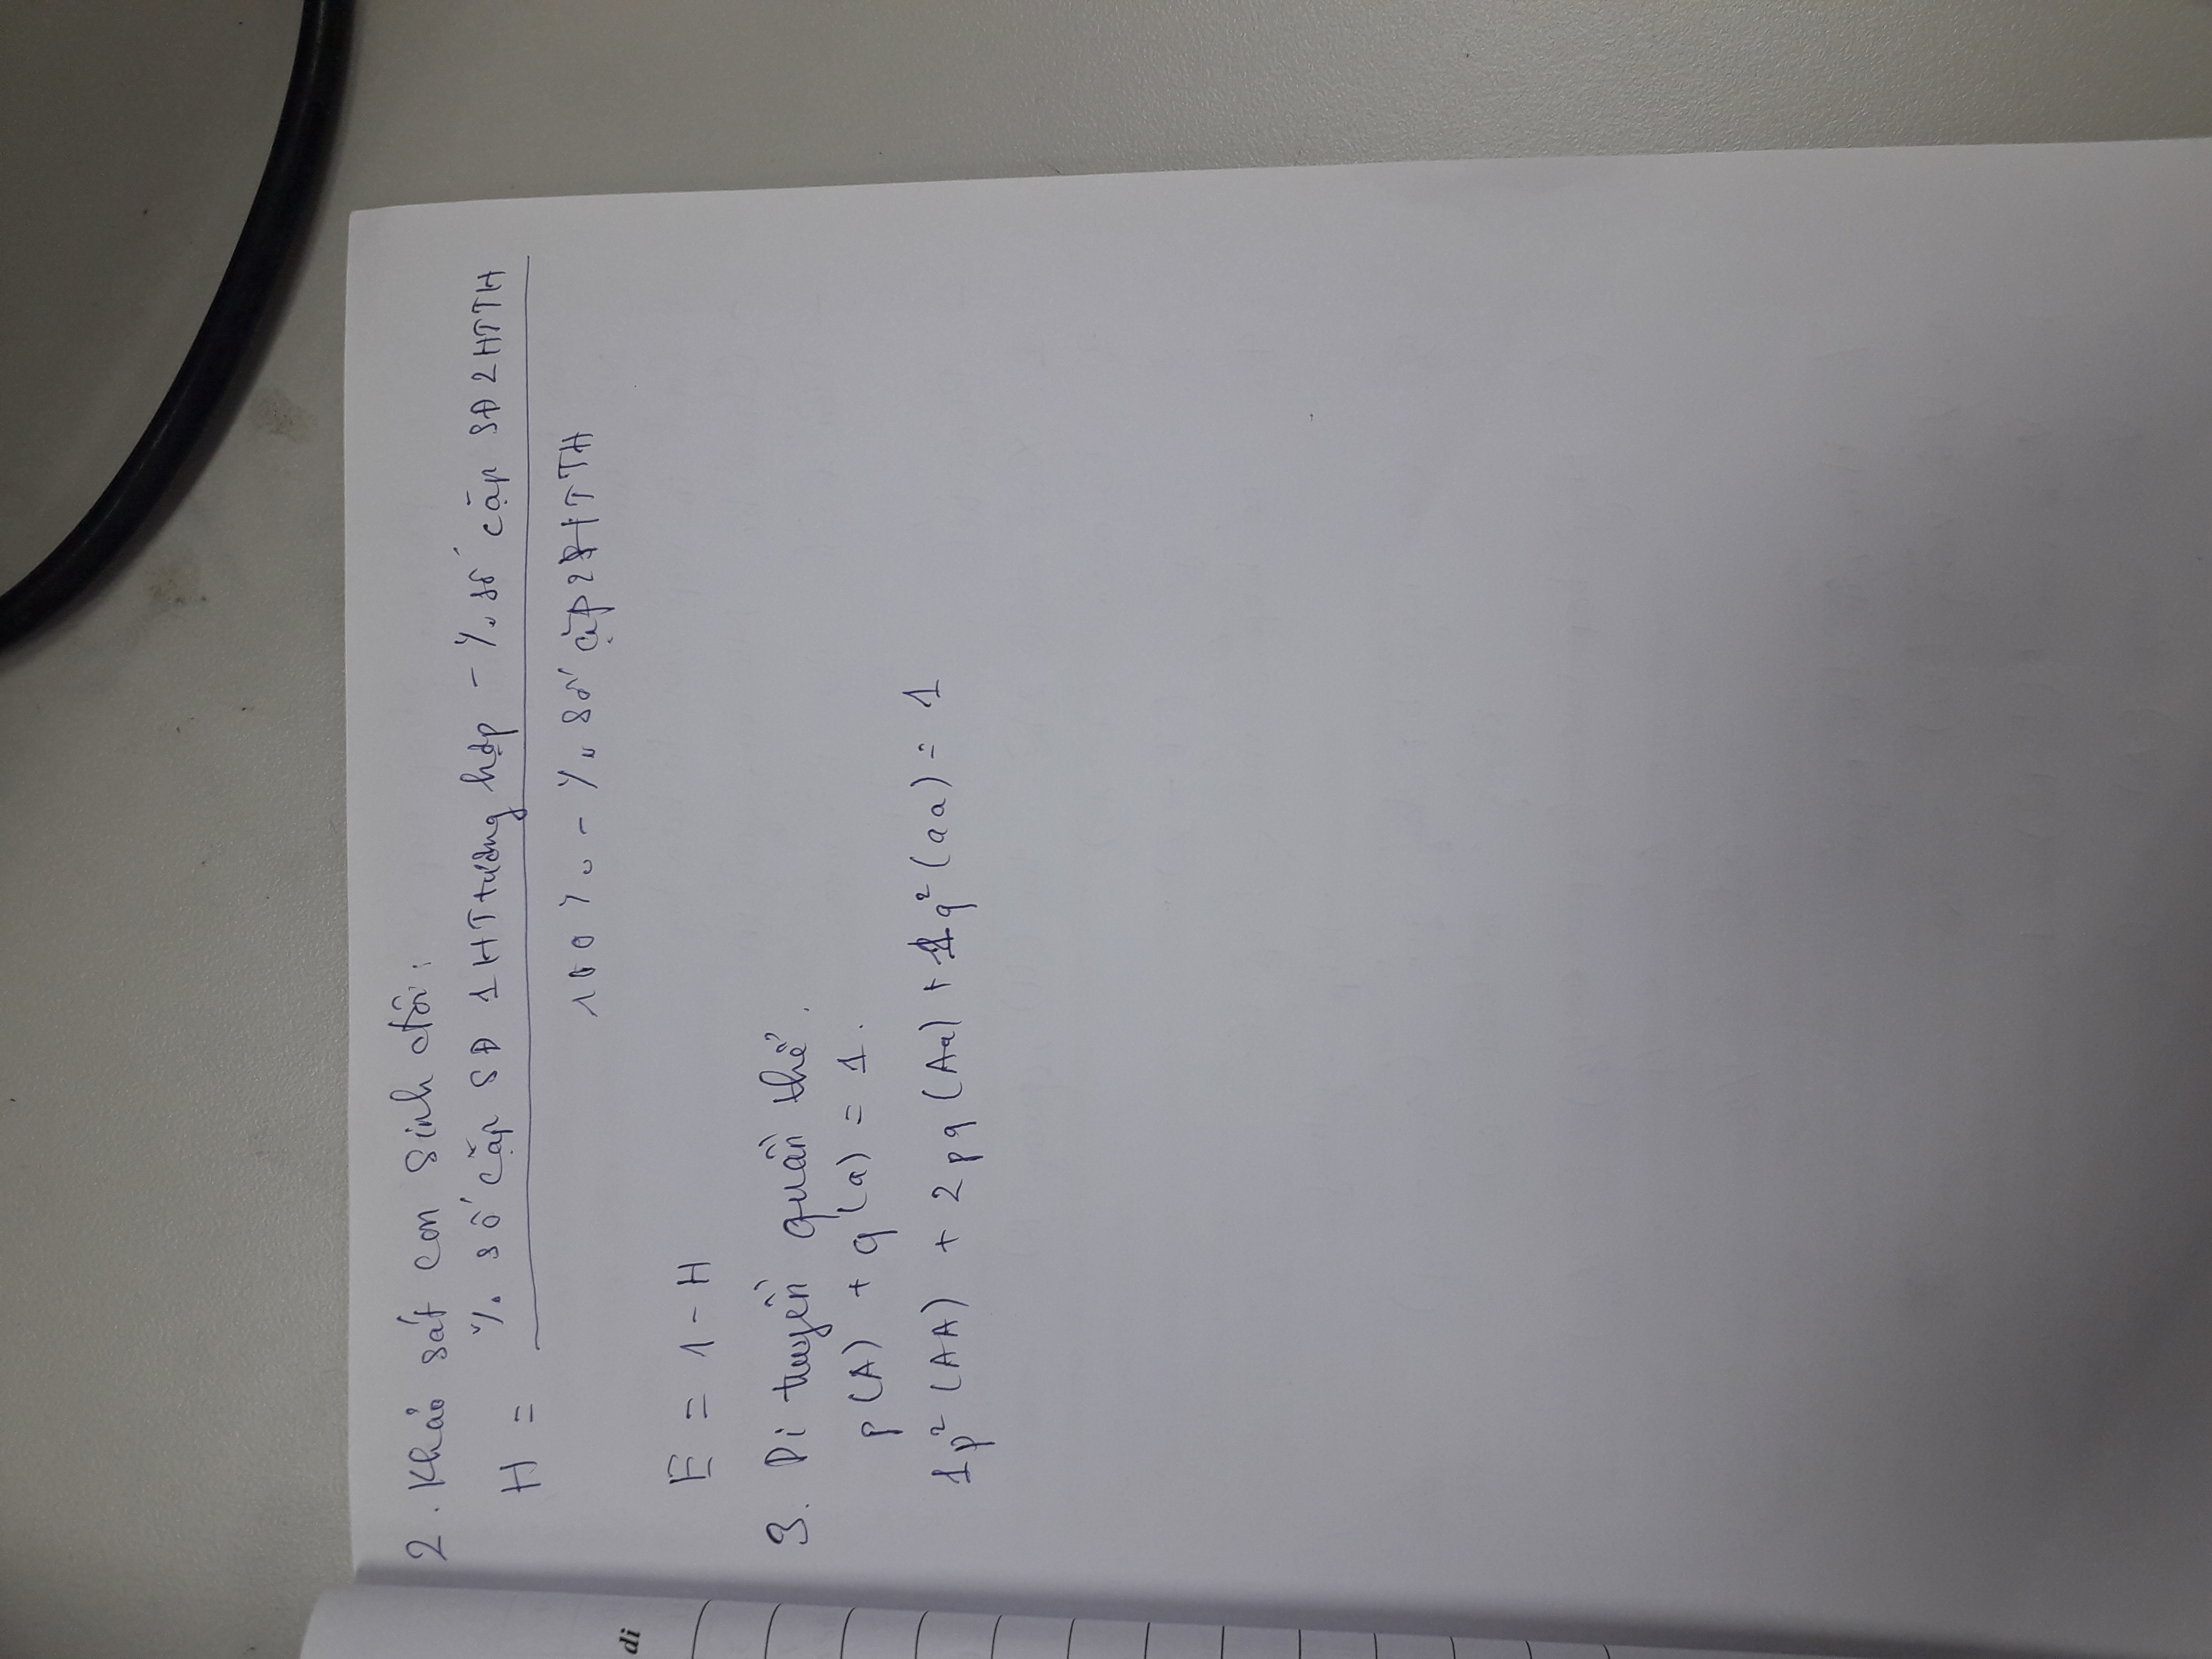 di
2. Khảo sát con sinh đôi:
H = % số cặp SĐ 1HT tương hợp - % số cặp SĐ 2HTTH
100% - % số cặp 2HTTH
E = 1 - H
3. Di truyền quần thể.
p(A) + q(a) = 1.
1p² (AA) + 2pq (Aa) + 1q² (aa) = 1